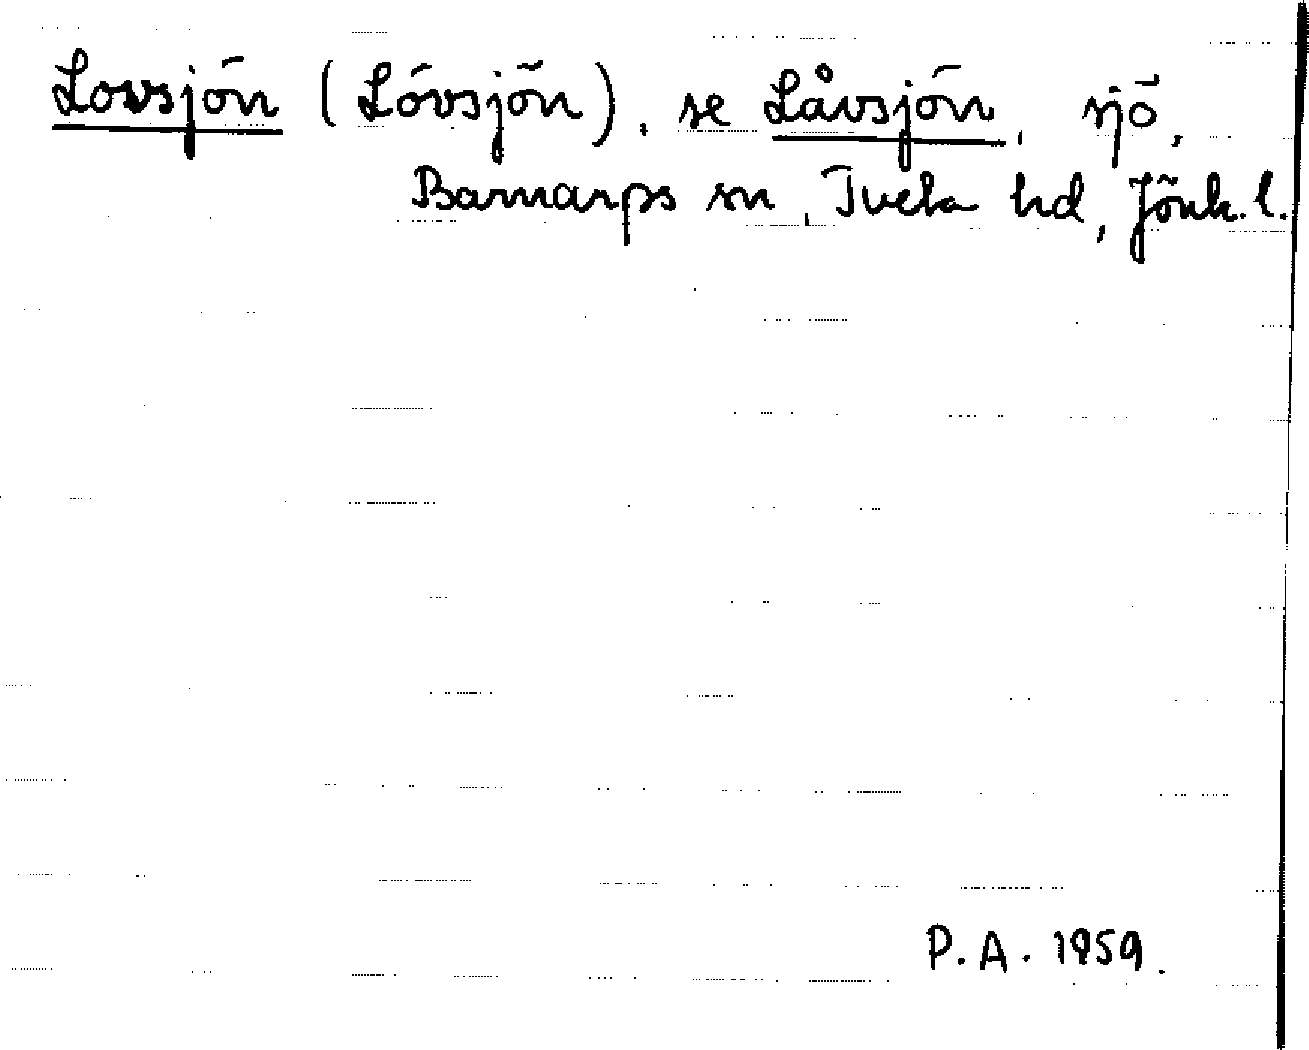 Lovsjön (Lövsjön), se Låvsjön, sjö,
Barnarps sn, Tveta hd, Jönk. l.
P. A. 1959.